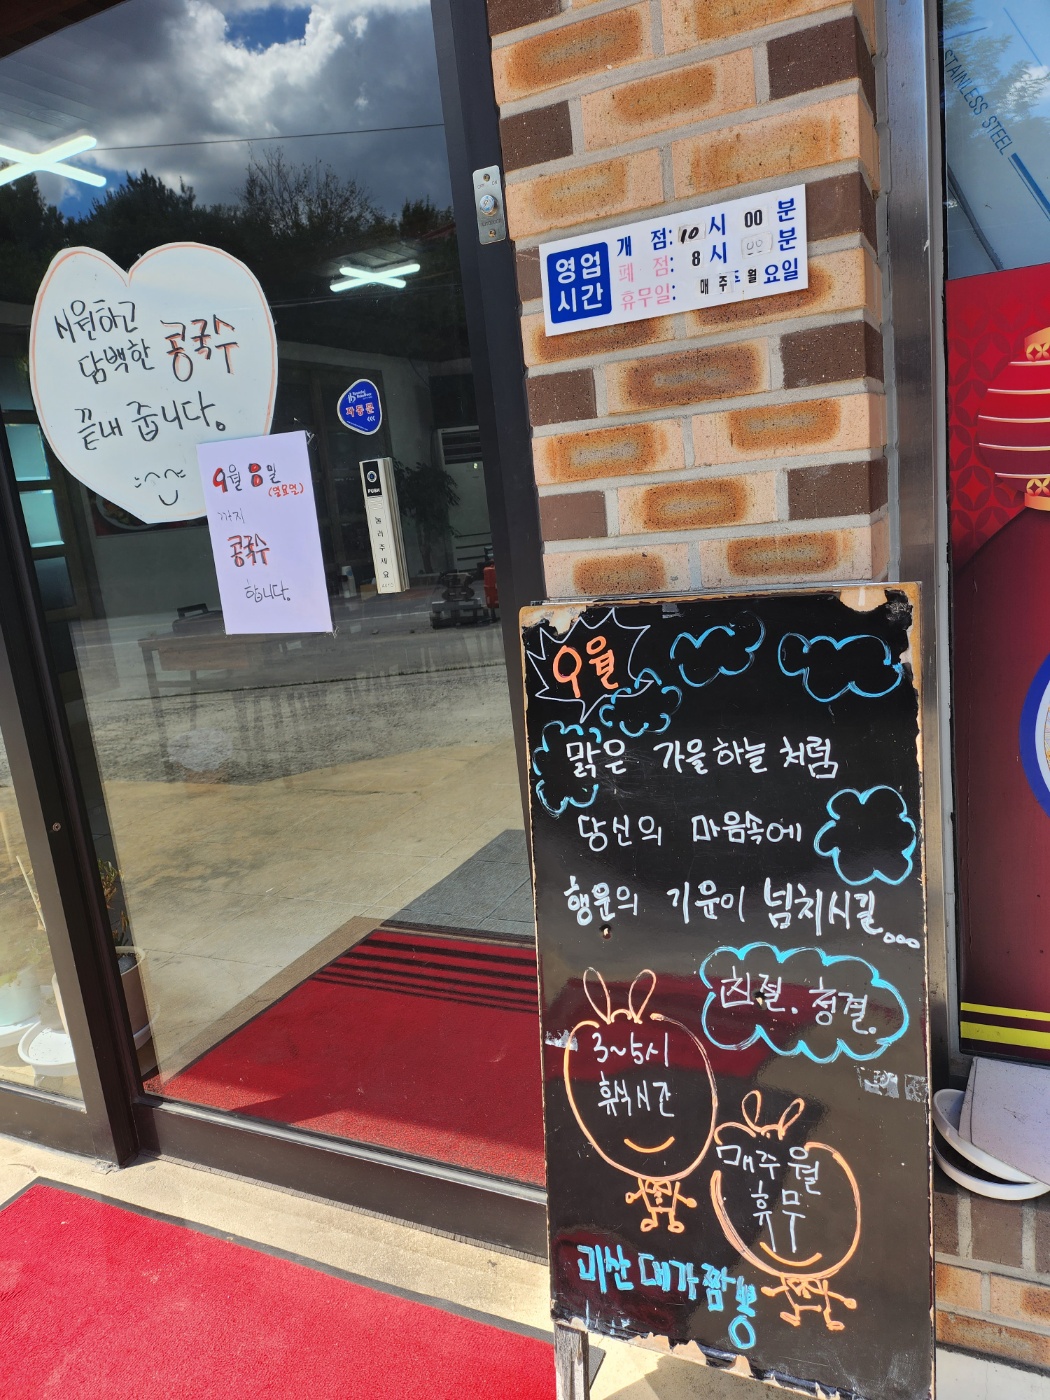 시원하고
담백한 콩국수
끝내 줍니다.
9월 8일
(일요일)
까지
콩국수
합니다.
자동문
PUSH
눌러주세요
영업
시간
개 점: 10 시 00 분
폐 점: 8 시 00 분
휴무일: 매주 월요일
STAINLESS STEEL
9월
맑은 가을하늘 처럼
당신의 마음속에
행운의 기운이 넘치시길...
친절. 청결.
3~5시
휴식시간
매주 월
휴무
괴산 대가짬뽕